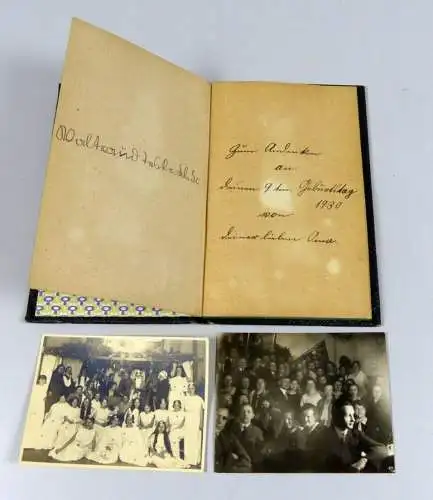 Waltraud
Zum Andenken
an
deinen 9. ten Geburtstag
1930
von
deiner lieben